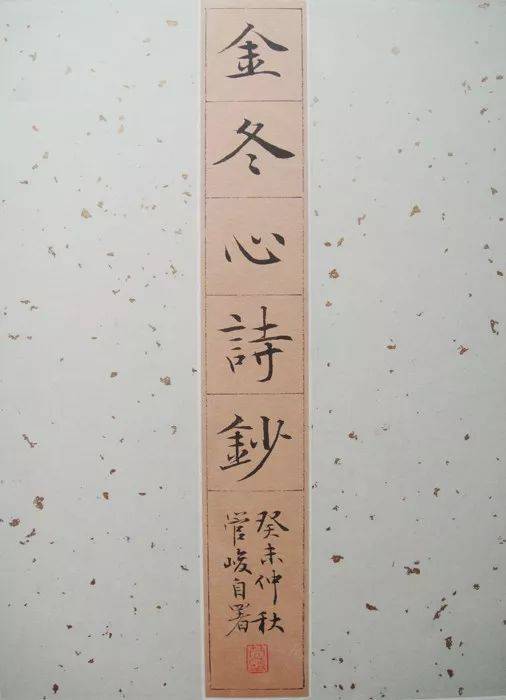 金冬心詩鈔
癸未仲秋
管峻自署